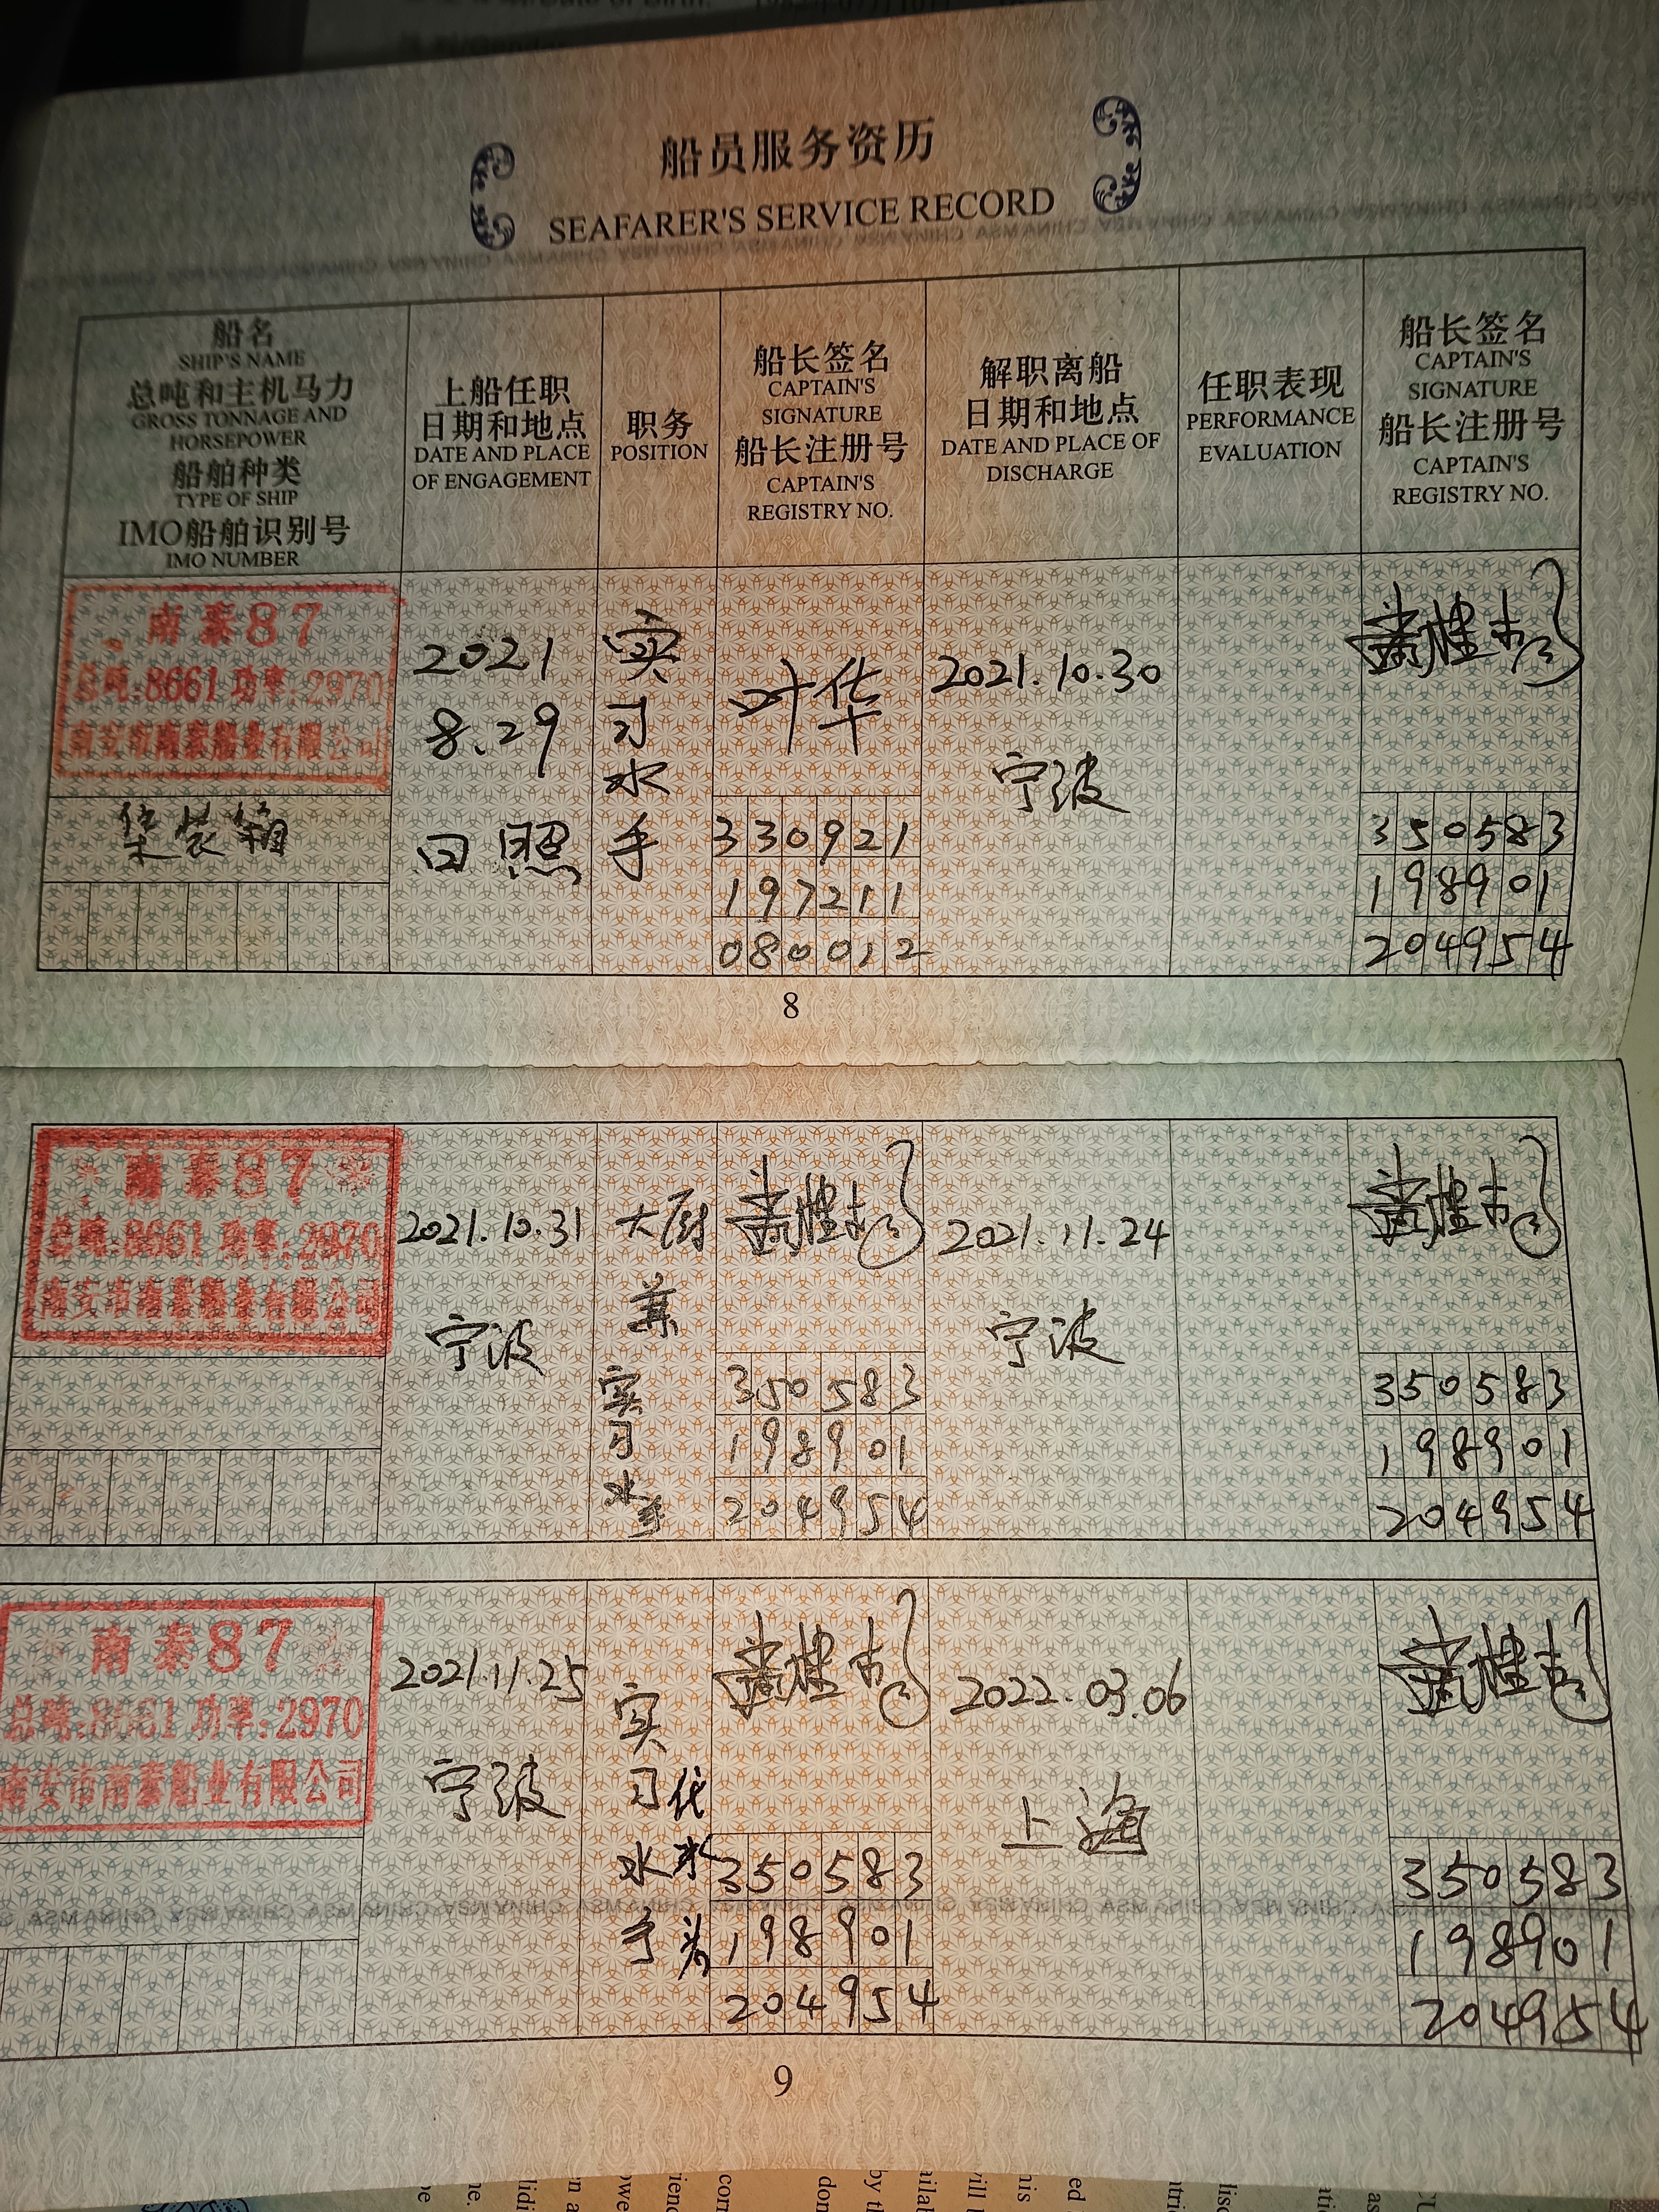 船员服务资历
SEAFARER'S SERVICE RECORD
船名
SHIP'S NAME
总吨和主机马力
GROSS TONNAGE AND
HORSEPOWER
船舶种类
TYPE OF SHIP
IMO船舶识别号
IMO NUMBER
上船任职
日期和地点
DATE AND PLACE
OF ENGAGEMENT
职务
POSITION
船长签名
CAPTAIN'S
SIGNATURE
船长注册号
CAPTAIN'S
REGISTRY NO.
解职离船
日期和地点
DATE AND PLACE OF
DISCHARGE
任职表现
PERFORMANCE
EVALUATION
船长签名
CAPTAIN'S
SIGNATURE
船长注册号
CAPTAIN'S
REGISTRY NO.
南泰87
总吨:8661 功率:2970
南安市南泰船业有限公司
集装箱
2021
8.29
日照
实
习
水
手
叶华
330921
197211
080012
2021.10.30
宁波
350583
198901
204954
8
南泰87
总吨:8661 功率:2970
南安市南泰船业有限公司
2021.10.31
宁波
大厨
兼
实
习
水
手
350583
198901
204954
2021.11.24
宁波
350583
198901
204954
南泰87
总吨:8661 功率:2970
南安市南泰船业有限公司
2021.11.25
宁波
实
习
水
手
代
水
头
350583
198901
204954
2022.03.06
上海
350583
198901
204954
9